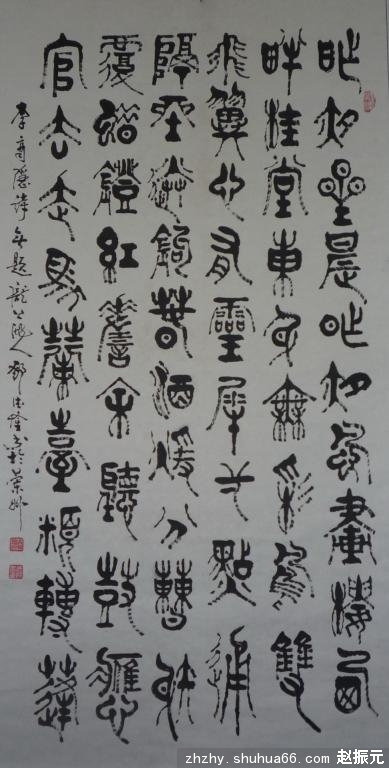 昨夜星晨昨夜風畫樓西
畔桂堂東身無彩鳳雙
飛翼心有靈犀一點通
隔座送鉤春酒暖分曹射
覆蠟鐙紅嗟余聽鼓應
官去走馬蘭臺類轉蓬
李商隱詩無題
zhzhy.shuhua66.com 赵振元